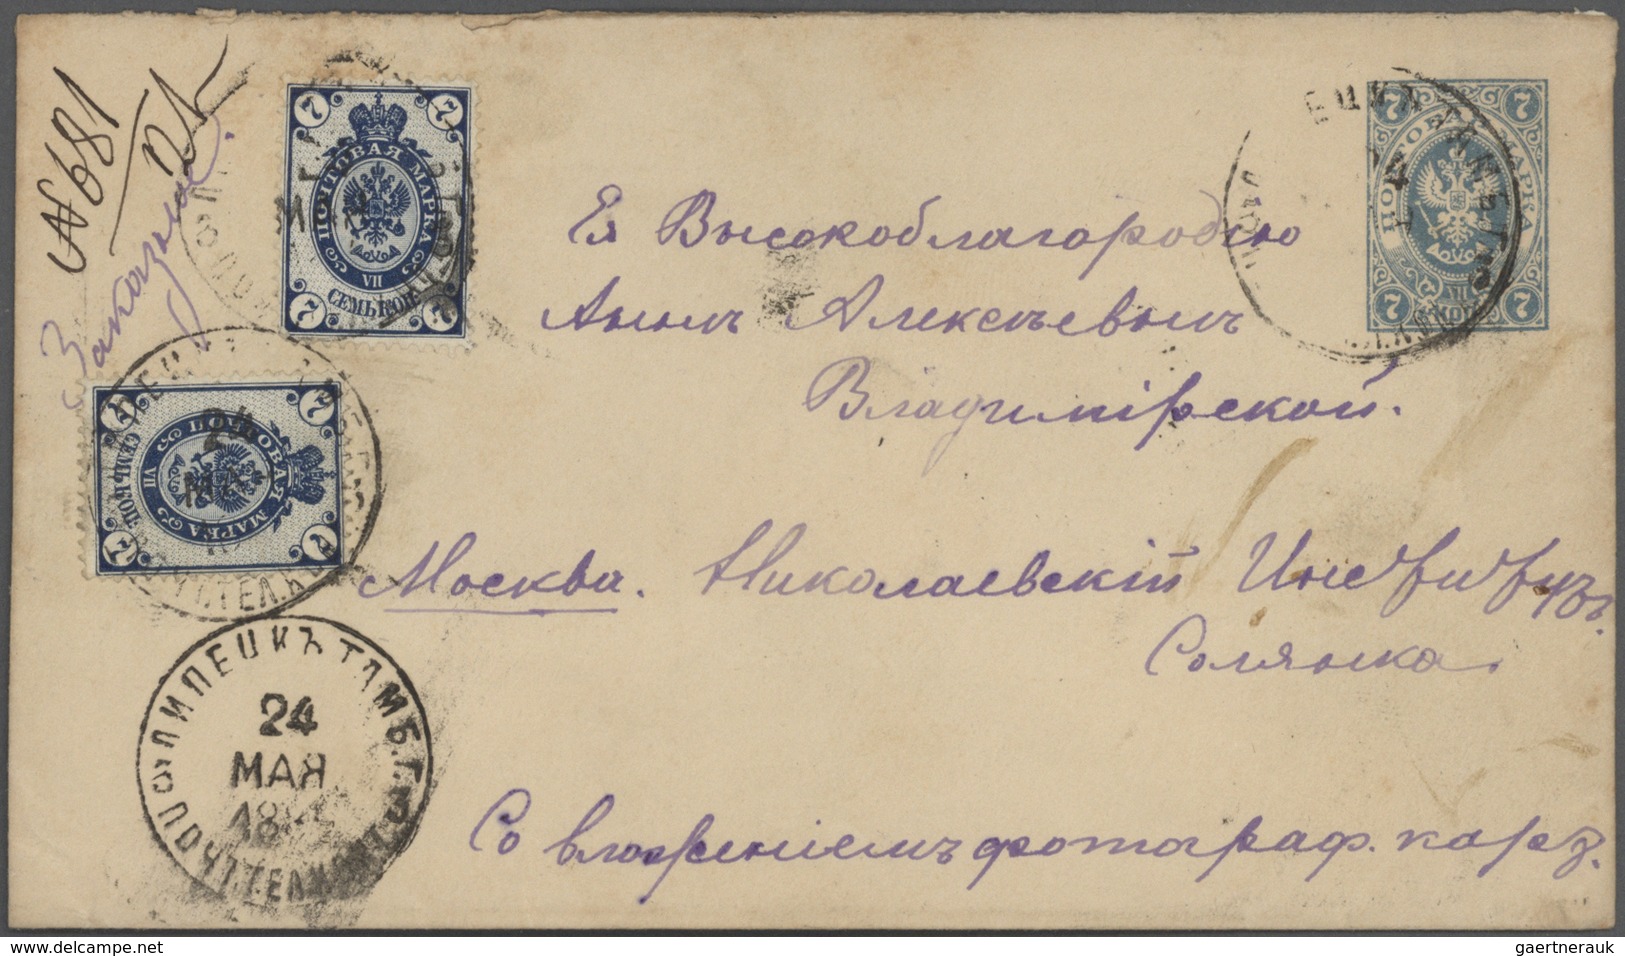 №681
Заказное.
7 7
ПОЧТОВАЯ МАРКА
VII
СЕМЬ КОП.
7 7
7 7
ПОЧТОВАЯ МАРКА
VII
СЕМЬ КОП.
7 7
7 7
ПОЧТОВАЯ МАРКА
VII
КОП.
7 7
Ея Высокоблагородію
Аннѣ Алексѣевнѣ
Владимірской.
Москва. Николаевскій Институтъ.
Солянка.
Со вложеніемъ фотограф. карт.
ЛИПЕЦКЪ ТАМБ. Г.
24
МАЯ
ПОЧТ. ТЕЛ. К.
24
МАЯ
gaertnerauk
www.delcampe.net